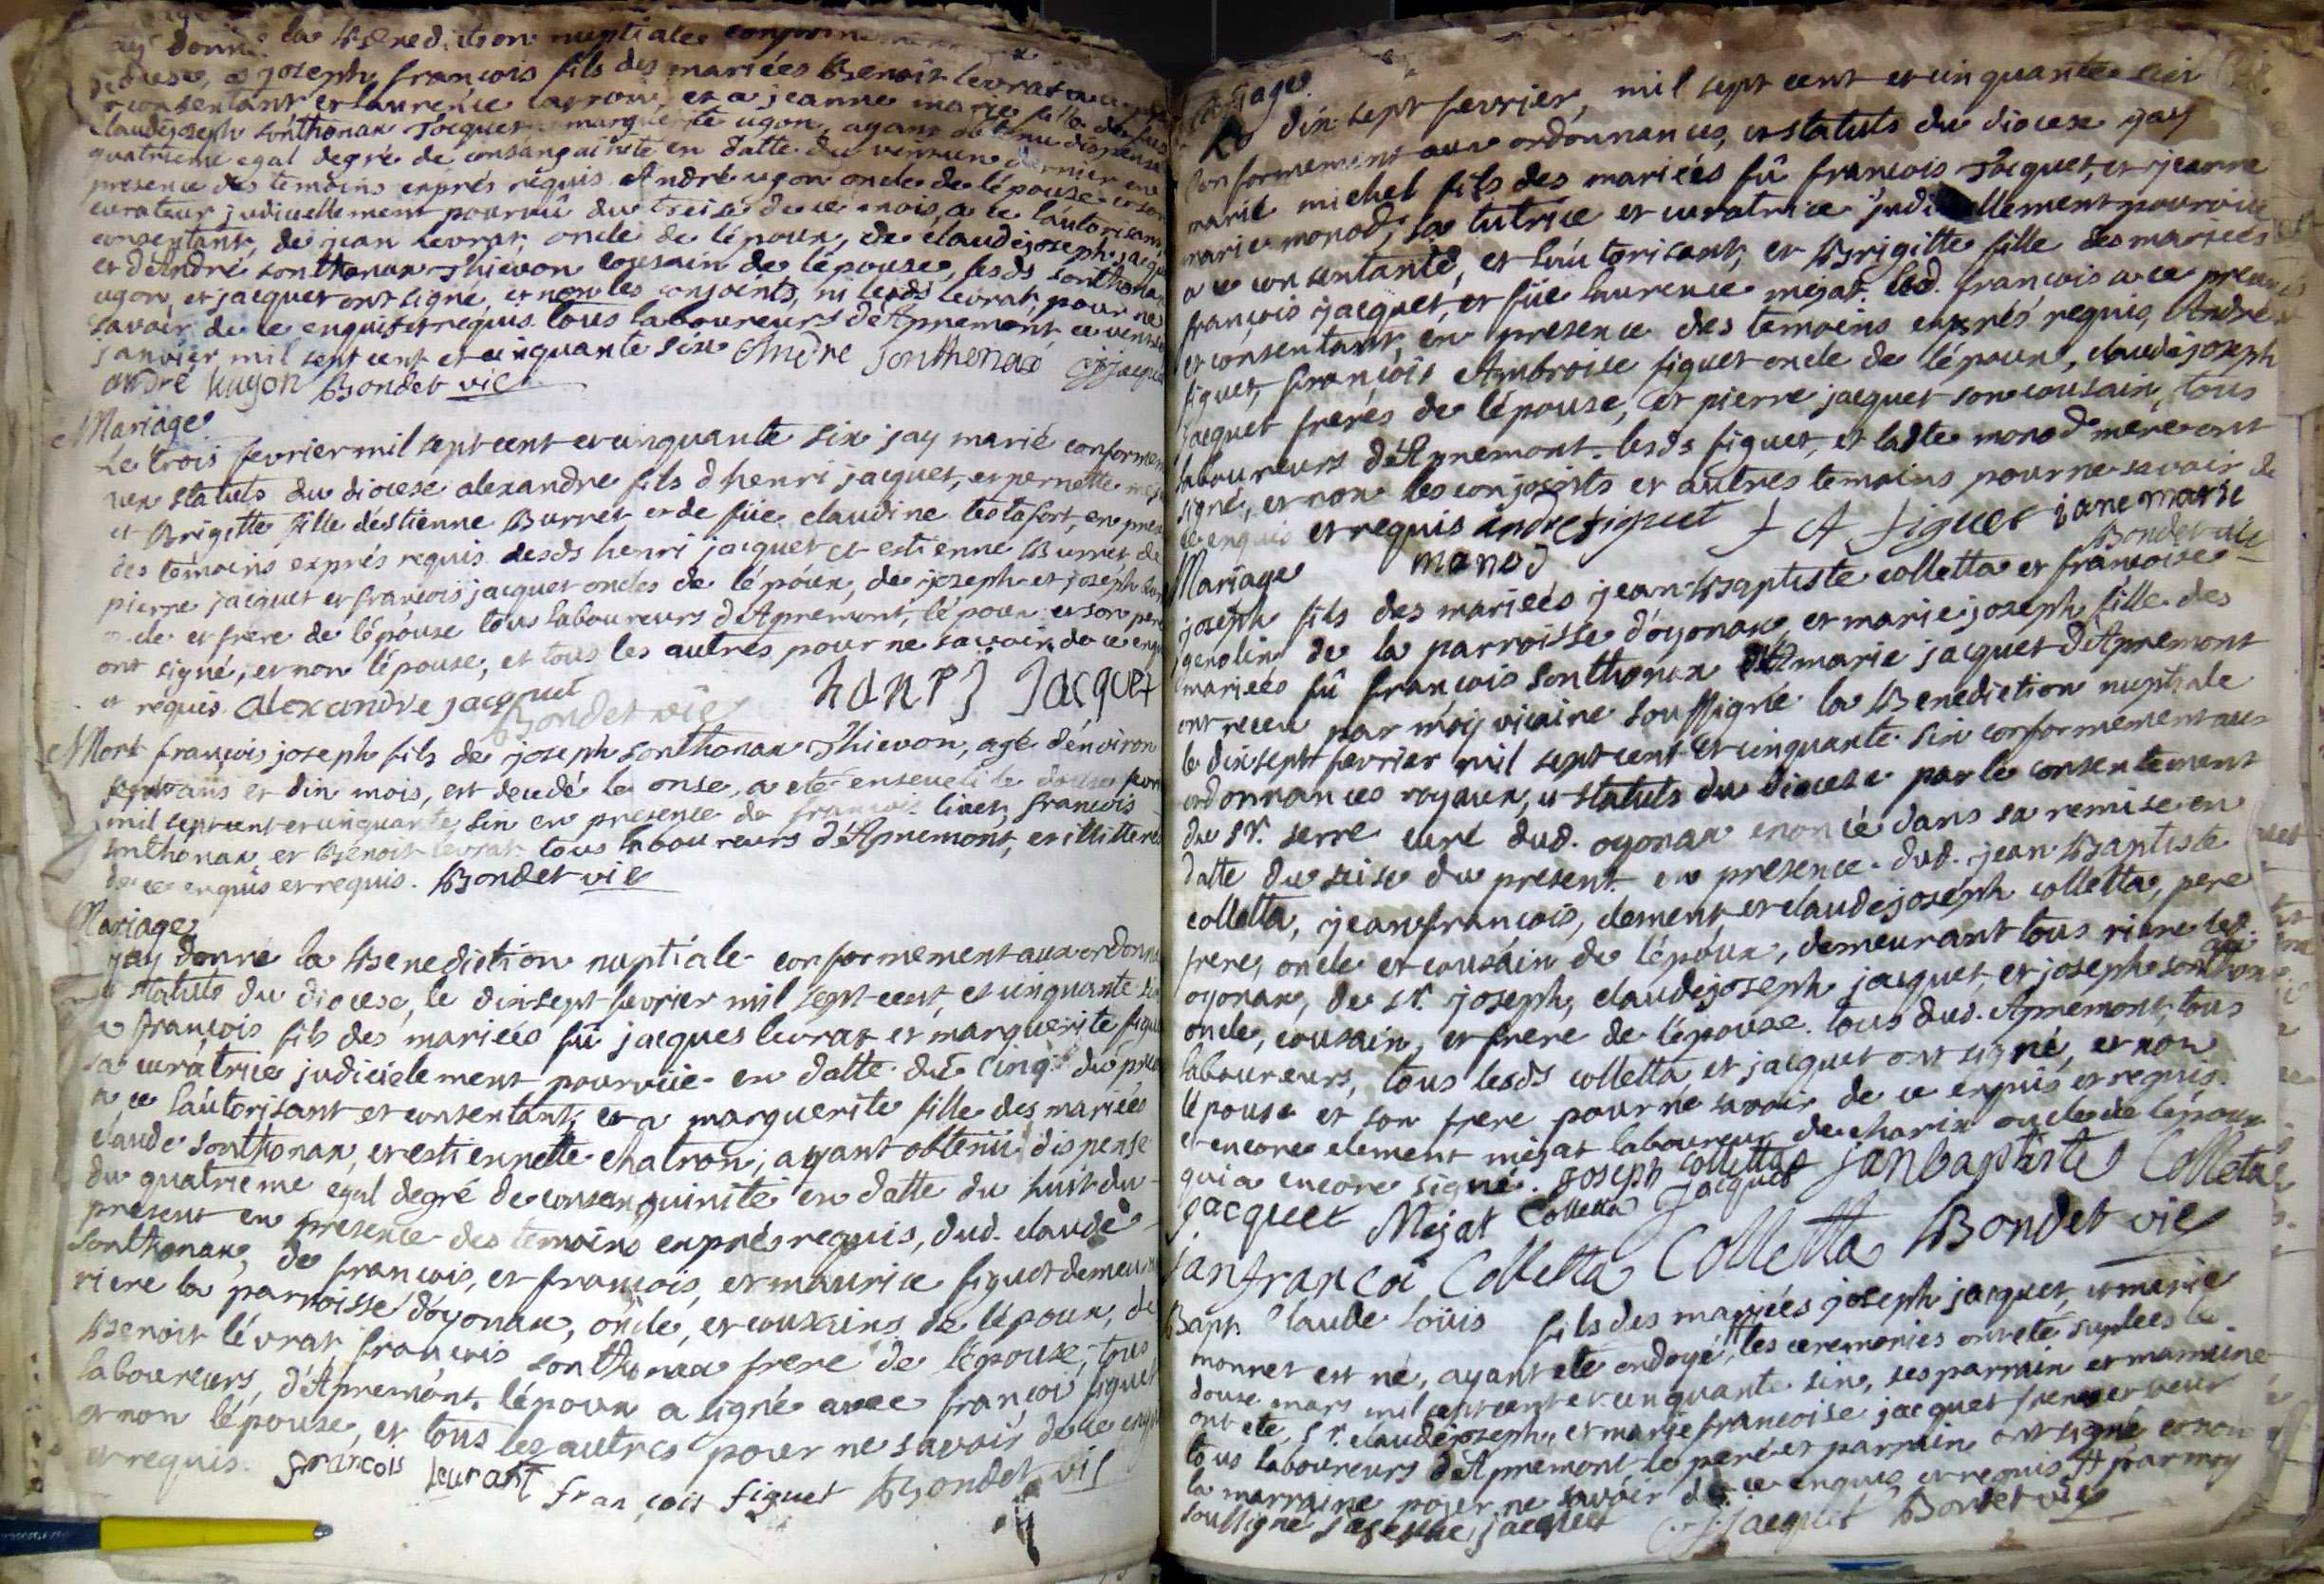 ay donné la Benediction nuptiale conform
diocese, a joseph françois fils des mariées Benoit levrat a ce
consentant et laurence carron, et a jeanne marie fille de fus
claudejoseph sonthonax Jacquet marguerite ugon, ayant obtenu dispense
quatrieme egal degré de consanguinité en datte du vint un dernier en
presence des temoins exprés requis André ugon oncle de lépouse et son
curateur judiciellement pourvû du treise de ce mois, a ce l'autorisant
consentant, de jean levrat, oncle de lépoux, de claudejoseph jacquet
et d'André sonthonax Thievon cousain de lépouse, lesds sonthonax
ugon, et jacquet ont signé, et non les conjoints, ni lesds levrat pour ne
savoir de ce enquis et requis. tous laboureurs d'Apremont, ce vint
janvier mil sept cent et cinquante six André Sonthonax jacquet
andré hugon Bondet vic
Mariage
Le trois fevrier mil sept cent et cinquante six jay marié conformem
aux statuts du diocese alexandre fils d henri jacquet, et pernette
et Brigitte fille d'estienne Burret et de füe claudine testafort, en pre
des temoins exprés requis desds henri jacquet et estienne Burret, de
pierre jacquet et françois jacquet oncles de lépoux, de joseph et joseph
oncle et frere de lépouse tous laboureurs d'Apremont, lépoux et son pere
ont signé, et non lépouse, et tous les autres pour ne savoir de ce enq
et requis. alexandre jacquet hanrj Jacquet
Bondet vic
Mort françois joseph fils de joseph sonthonax Thievon, agé d'environ
sept ans et dix mois, est decedé le onse, a eté enseveli le douse fevr
mil sept cent et cinquante six en presence de françois livet, françois
sonthonax, et Benoit levrat tous laboureurs d'Apremont, et illitteré
de ce enquis et requis. Bondet vic
Mariage
jay donné la Benediction nuptiale conformement aux ordonn
et statuts du diocese, le dixsept fevrier mil sept cent, et cinquante six
a françois fils des mariées fû jacques levrat et marguerite figuet
sa curatrice judicielement pourvüe en datte du cinq du pre
a ce l'autorisant et consentant, et a marguerite fille des mariées
claude sonthonax, et estiennette chatron, ayant obtenü dispense
du quatrieme egal degré de consanguinité en datte du huit du
present en presence des temoins exprés requis, dud. claude
sonthonax, de françois, et françois, et maurice figuet demeur
riere la parroisse d'oyonax, oncle, et cousains de lépoux, de
Benoit lévrat françois sonthonax frere de lépouse, tous
laboureurs, d'Apremont. lépoux a signé avec françoi figuet
et non lépouse, et tous les autres pour ne savoir de ce enq
et requis. francois leurant francois figuet Bondet vic
Mariage
Le dix sept fevrier, mil sept cent et cinquante six
Conformement aux ordonnances, et statuts du diocese jay
marié michel fils des mariées fû françois Jacquet, et jeanne
marie monod, sa tutrice et curatrice judiciellement pourvue
a ce consentante, et l'autorisant, et Brigitte fille des mariées
françois jacquet, et füe laurence mejat. led. françois a ce present
et consentant, en presence des temoins exprés requis, André
figuet, françois Ambroise figuet oncle de lépoux, claudejoseph
jacquet freres de lépouse, et pierre jacquet son cousain, tous
laboureurs d'Apremont. lesds figuet, et ladte monod mere ont
signé, et non les conjoints et autres temoins pour ne savoir de
ce enquis et requis andre figuet f A figuet iane marie
monod Bondet vic
Mariage
joseph fils des mariées jean Baptiste colletta et francoise
genolin de la parroisse d'oyonax, et marie joseph fille des
mariées fû françois Sonthonax et marie jacquet d'Apremont
ont receu par moy vicaire soussigné la Benediction nuptiale
le dixsept fevrier mil sept cent et cinquante six conformement aux
ordonnances royaux, et statuts du diocese par le consentement
du sr. serre curé dud. oyonax enoncé dans sa remise en
datte du seise du present en presence dud. jean Baptiste
colletta, jean françois, clement, et claudejoseph colletta, pere
frere, oncle et cousain de lépoux, demeurant tous riere led.
oyonax, de sr. joseph, claudejoseph jacquet, et joseph sonthonax
oncle, cousain, et frere de lépouse. tous dud. Apremont, tous
laboureurs, tous lesds colletta, et jacquet ont signé, et non
lépouse et son frere pour ne savoir de ce enquis et requis.
et encore clement mejat laboureur de charix oncle de lépoux
qui a encore signé. Joseph Colletta janbaptiste Colleta
jacquet Mejat Colletta Jacquet
janfrancoi Colletta Colletta Bondet vic
Bapt. Claude Loüis fils des mariées joseph jacquet, et marie
monnet est né, ayant eté ondoyé, les ceremonies ont eté suplées le
douse mars mil sept cent et cinquante six, ses parrain et marraine
ont eté, sr. claudejoseph, et marie francoise jacquet frere et seur
tous laboureurs d'Apremont le pere et parrain ont signé et non
la marraine pour ne savoir de ce enquis, et requis # par moy
soussigné joseph jacquet jacquet Bondet vic